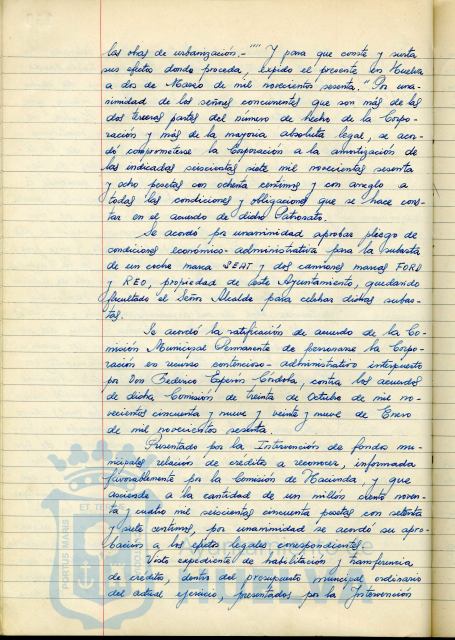 las obras de urbanización.-"" Y para que conste y surta
sus efectos donde proceda, expido el presente en Huelva
a dos de Marzo de mil novecientos sesenta." Por una-
nimidad de los señores concurrentes que son más de las
dos terceras partes del número de hecho de la Corpo-
ración y más de la mayoria absoluta legal, se acor-
dó comprometerse la Corporación a la amortización de
las indicadas seiscientas siete mil novecientas sesenta
y ocho pesetas con ochenta centimos y con arreglo a
todas las condiciones y obligaciones que se hace cons-
tar en el acuerdo de dicho Patronato.
Se acordó por unanimidad aprobar pliego de
condiciones económico-administrativa para la subasta
de un coche marca SEAT y dos camiones marcas FORD
y REO, propiedad de este Ayuntamiento, quedando
facultado el Señor Alcalde para celebrar dichas subas-
tas.
Se acordó la ratificación de acuerdo de la Co-
misión Municipal Permanente de personarse la Corpo-
ración en recurso contencioso-administrativo interpuesto
por Don Federico Esperón Córdoba, contra los acuerdos
de dicha Comisión de treinta de Octubre de mil no-
vecientos cincuenta y nueve y veinte y nueve de Enero
de mil novecientos sesenta.
Presentado por la Intervención de fondos mu-
nicipales relación de créditos a reconocer, informada
favorablemente por la Comisión de Hacienda, y que
asciende a la cantidad de un millón ciento noven-
ta y cuatro mil seiscientas cincuenta pesetas con setenta
y siete centimos, por unanimidad se acordó su apro-
bación a los efectos legales correspondientes.
Visto expediente de habilitación y transferencia
de créditos, dentro del presupuesto municipal ordinario
del actual ejercicio, presentados por la Intervención
PORTUS MARIS
ET TERRAE